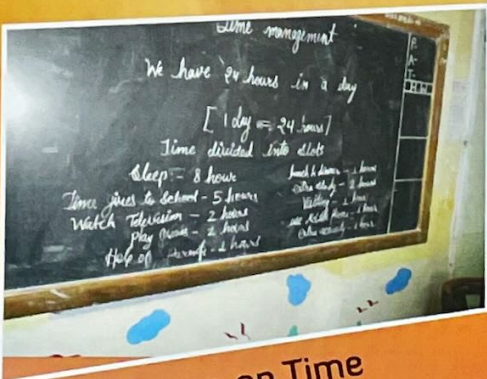 Time management
We have 24 hours in a day
[1 day = 24 hours]
Time divided into slots
Sleep - 8 hour
Time gives to School - 5 hours
Watch Television - 2 hours
Play - 2 hours
Help of Parents - 2 hours
lunch & dinner - hours
extra study - 2 hours
- 1 hour
- 1 hour
extra activity - 1 hour
P.
A-
T-
H W
on Time